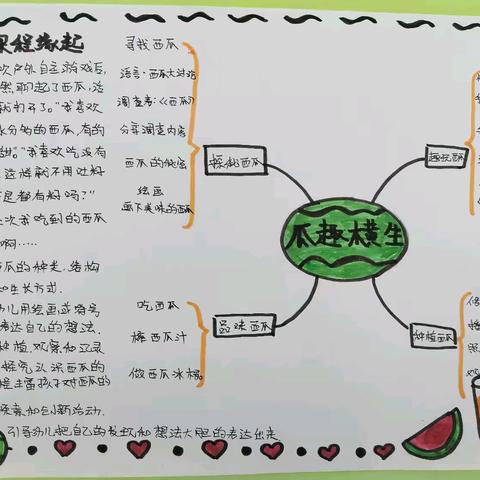 课程缘起
次户外自主游戏后,
然聊起了西瓜,活
就打开了。"我喜欢
水分多的西瓜,有的
甜。"我喜欢吃没有
这样就不用吐籽
不是都有籽吗?"
上次我吃到的西瓜
啊……
西瓜的种类,结构
和生长方式.
幼儿用绘画或符号
表达自己的想法.
种植,观察和记录
探究,认识西瓜的
探索和创新活动.
引导幼儿把自己的发现和想法大胆的表达出来
寻找西瓜
语言·西瓜大讨论
调查表:《西瓜》
分享调查内容
西瓜的秘密
绘画
画下美味的西瓜
探秘西瓜
吃西瓜
榨西瓜汁
做西瓜冰棍
品味西瓜
瓜趣横生
趣玩西瓜
种植西瓜